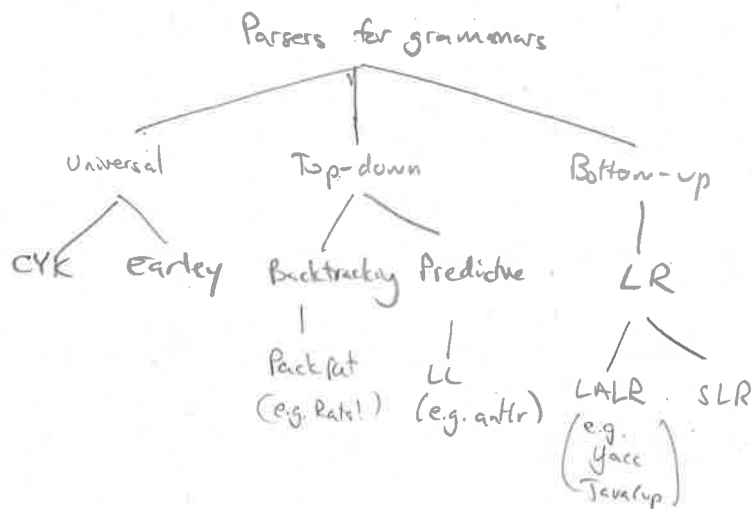 Parsers for grammars
Universal Top-down Bottom-up
CYK Earley Backtracking Predictive LR
Packrat LL LALR SLR
(e.g. Rats!) (e.g. antlr) (e.g.
Yacc
JavaCup)